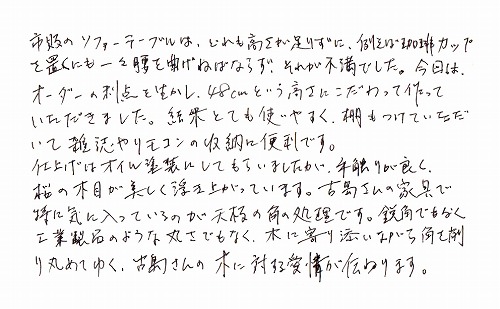 市販のソファーテーブルは、どれも高さが足りずに、例えば珈琲カップ
を置くにも一々腰を曲げねばならず、それが不満でした。今回は、
オーダーの利点を生かし、48cmという高さにこだわって作って
いただきました。結果とても使いやすく、棚もつけていただ
いて雑誌やリモコンの収納に便利です。
仕上げはオイル塗装にしてもらいましたが、手触りが良く、
桜の木目が美しく浮き上がっています。古島さんの家具で
特に気に入っているのが天板の角の処理です。鋭角でもなく
工業製品のような丸さでもなく、木に寄り添いながら角を削
り丸めてゆく、古島さんの木に対する愛情が伝わります。